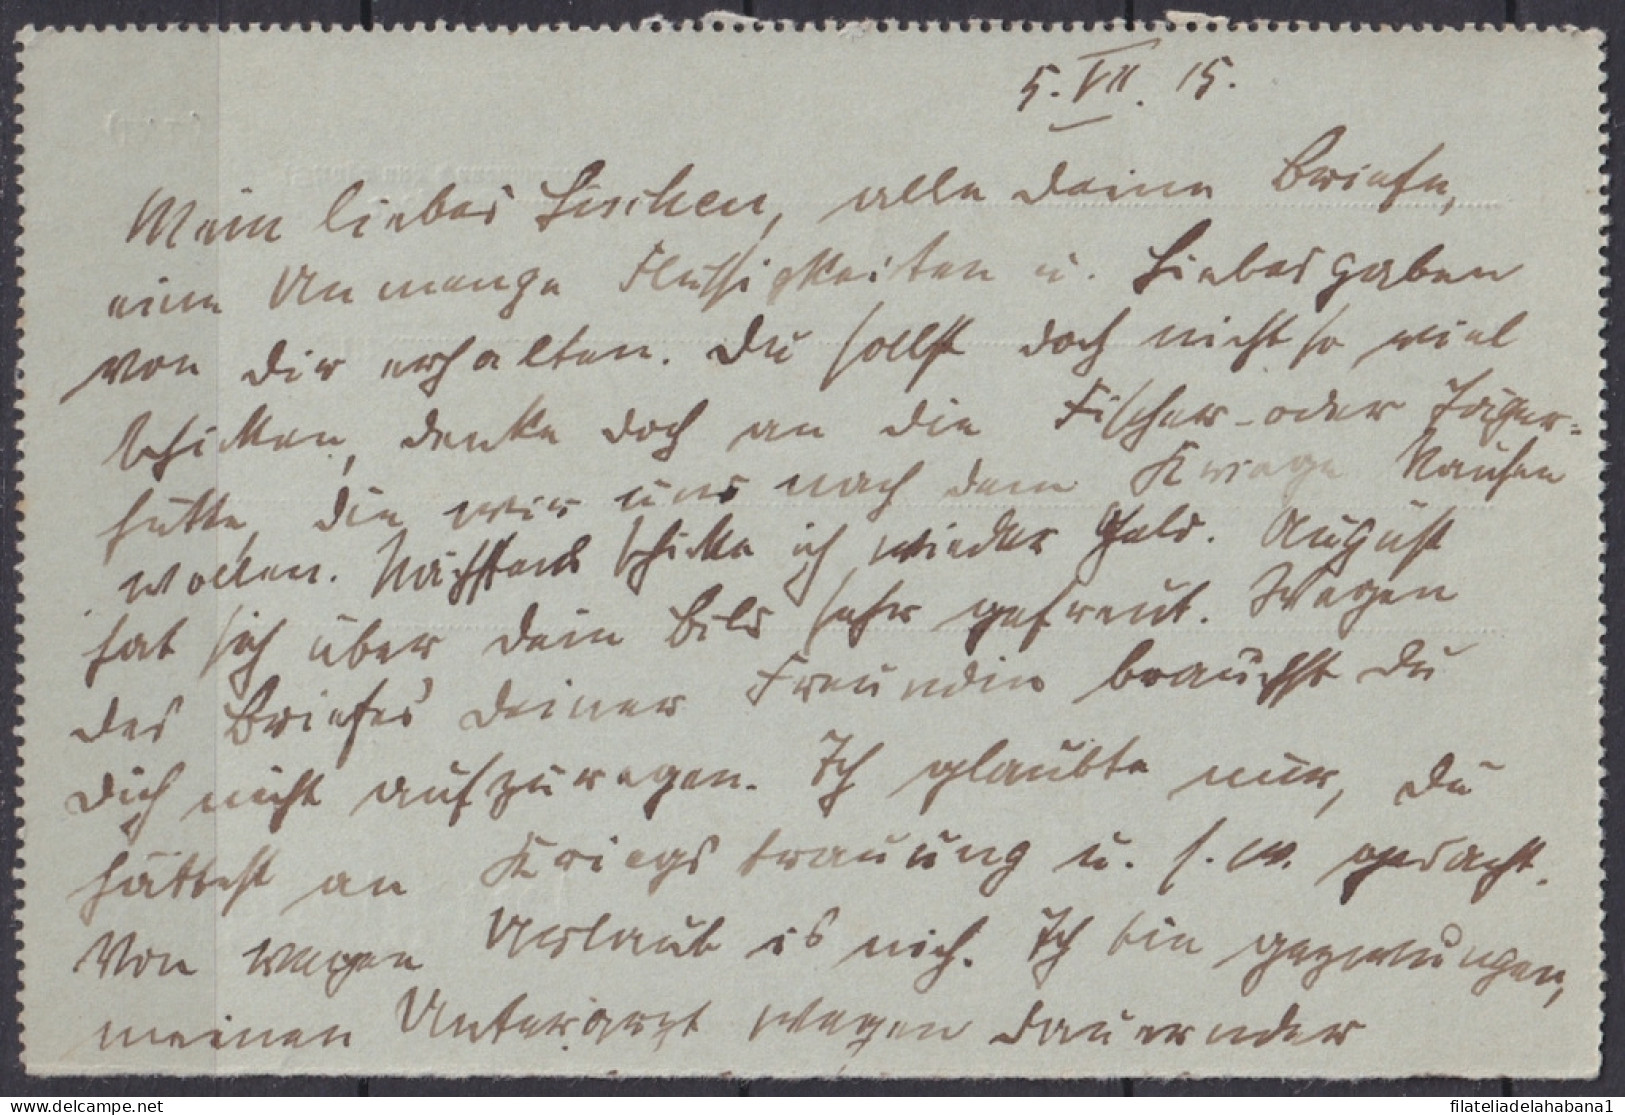 5. VII. 15.
Mein liebes Lieschen, alle deine Briefe,
eine Unmenge Flüssigkeiten u. Liebesgaben
von dir erhalten. Du sollst doch nicht so viel
schicken, denke doch an die Fischer- oder Jäger-
hütte, die wir uns nach dem Kriege kaufen
wollen. Nächstens schicke ich wieder Geld. August
hat sich über dein Bild sehr gefreut. Wegen
des Briefes deiner Freundin brauchst Du
Dich nicht aufzuregen. Ich glaubte nur, Du
hättest an Kriegstrauung u. s. w. gedacht.
Von wegen Urlaub is nich. Ich bin gezwungen,
meinen Unterarzt wegen dauernder
filateliadelahabana1
the best marketplace for collectors